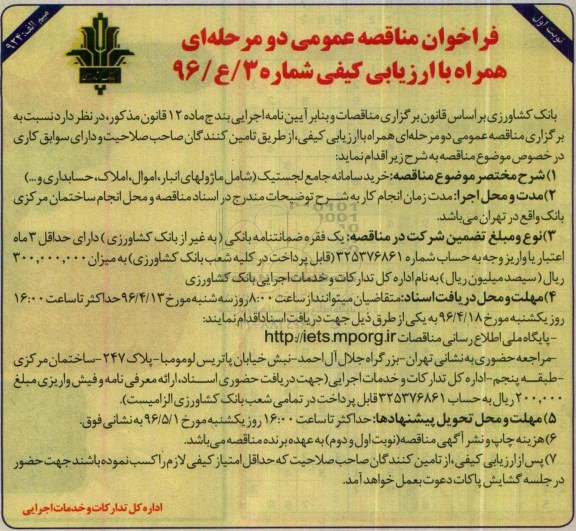 نوبت اول
میم الف: ۹۲۴
فراخوان مناقصه عمومی دو مرحله‌ای
همراه با ارزیابی کیفی شماره ۳/ع/۹۶
بانک کشاورزی بر اساس قانون برگزاری مناقصات و بنابر آیین نامه اجرایی بند ج ماده ۱۲ قانون مذکور، در نظر دارد نسبت به
برگزاری مناقصه عمومی دو مرحله‌ای همراه با ارزیابی کیفی، از طریق تامین کنندگان صاحب صلاحیت و دارای سوابق کاری
در خصوص موضوع مناقصه به شرح زیر اقدام نماید:
۱) شرح مختصر موضوع مناقصه: خرید سامانه جامع لجستیک (شامل ماژولهای انبار، اموال، املاک، حسابداری و...)
۲) مدت و محل اجرا: مدت زمان انجام کار به شرح توضیحات مندرج در اسناد مناقصه و محل انجام ساختمان مرکزی
بانک واقع در تهران می‌باشد.
۳) نوع و مبلغ تضمین شرکت در مناقصه: یک فقره ضمانتنامه بانکی (به غیر از بانک کشاورزی) دارای حداقل ۳ ماه
اعتبار یا واریز وجه به حساب شماره ۳۲۵۳۷۶۸۶۱ (قابل پرداخت در کلیه شعب بانک کشاورزی) به میزان ۳۰۰,۰۰۰,۰۰۰
ریال (سیصد میلیون ریال) به نام اداره کل تدارکات و خدمات اجرایی بانک کشاورزی
۴) مهلت و محل دریافت اسناد: متقاضیان میتوانند از ساعت ۸:۰۰ روز سه شنبه مورخ ۹۶/۴/۱۳ حداکثر تا ساعت ۱۶:۰۰
روز یکشنبه مورخ ۹۶/۴/۱۸ به یکی از طرق ذیل جهت دریافت اسناد اقدام نمایند:
- پایگاه ملی اطلاع رسانی مناقصات http://iets.mporg.ir
- مراجعه حضوری به نشانی تهران- بزرگراه جلال آل احمد- نبش خیابان پاتریس لومومبا- پلاک ۲۴۷- ساختمان مرکزی
- طبقه پنجم- اداره کل تدارکات و خدمات اجرایی (جهت دریافت حضوری اسناد، ارائه معرفی نامه و فیش واریزی مبلغ
۲۰۰,۰۰۰ ریال به حساب ۳۲۵۳۷۶۸۶۱ قابل پرداخت در تمامی شعب بانک کشاورزی الزامیست).
۵) مهلت و محل تحویل پیشنهادها: حداکثر تا ساعت ۱۶:۰۰ روز یکشنبه مورخ ۹۶/۵/۱ به نشانی فوق.
۶) هزینه چاپ و نشر آگهی مناقصه (نوبت اول و دوم) به عهده برنده مناقصه می‌باشد.
۷) پس از ارزیابی کیفی، از تامین کنندگان صاحب صلاحیت که حداقل امتیاز کیفی لازم را کسب نموده باشند جهت حضور
در جلسه گشایش پاکات دعوت بعمل خواهد آمد.
اداره کل تدارکات و خدمات اجرایی